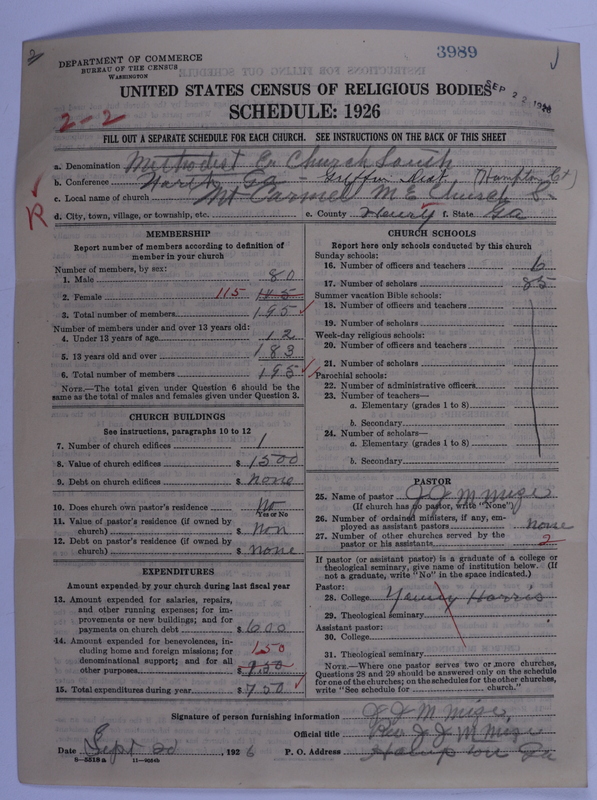 3989
DEPARTMENT OF COMMERCE
BUREAU OF THE CENSUS
WASHINGTON
UNITED STATES CENSUS OF RELIGIOUS BODIES
SEP 2
SCHEDULE: 1926
2-2
FILL OUT A SEPARATE SCHEDULE FOR EACH CHURCH. SEE INSTRUCTIONS ON THE BACK OF THIS SHEET
a. Denomination Methodist Ep Church South
b. Conference North Ga - Griffin Dist (Hampton Ct)
c. Local name of church Mt Carmel M E Church S
R
d. City, town, village, or township, etc. e. County Henry f. State Ga
MEMBERSHIP
Report number of members according to definition of member in your church
Number of members, by sex:
1. Male 80
2. Female 115
3. Total number of members 195
Number of members under and over 13 years old:
4. Under 13 years of age 12
5. 13 years old and over 183
6. Total number of members 195
NOTE.—The total given under Question 6 should be the same as the total of males and females given under Question 3.
CHURCH BUILDINGS
See instructions, paragraphs 10 to 12
7. Number of church edifices 1
8. Value of church edifices $ 1500
9. Debt on church edifices $ none
10. Does church own pastor's residence No
Yes or No
11. Value of pastor's residence (if owned by church) $ Non
12. Debt on pastor's residence (if owned by church) $ none
EXPENDITURES
Amount expended by your church during last fiscal year
13. Amount expended for salaries, repairs, and other running expenses; for improvements or new buildings; and for payments on church debt $ 600
14. Amount expended for benevolences, including home and foreign missions; for denominational support; and for all other purposes $ 150
15. Total expenditures during year $ 750
CHURCH SCHOOLS
Report here only schools conducted by this church
Sunday schools:
16. Number of officers and teachers 6
17. Number of scholars 85
Summer vacation Bible schools:
18. Number of officers and teachers
19. Number of scholars
Week-day religious schools:
20. Number of officers and teachers
21. Number of scholars
Parochial schools:
22. Number of administrative officers
23. Number of teachers—
a. Elementary (grades 1 to 8)
b. Secondary
24. Number of scholars—
a. Elementary (grades 1 to 8)
b. Secondary
PASTOR
25. Name of pastor J J M Mize
(If church has no pastor, write "None")
26. Number of ordained ministers, if any, employed as assistant pastors none
27. Number of other churches served by the pastor or his assistants 2
If pastor (or assistant pastor) is a graduate of a college or theological seminary, give name of institution below. (If not a graduate, write "No" in the space indicated.)
Pastor:
28. College Young Harris
29. Theological seminary
Assistant pastor:
30. College
31. Theological seminary
NOTE.—Where one pastor serves two or more churches, Questions 28 and 29 should be answered only on the schedule for one of the churches; on the schedules for the other churches, write "See schedule for church."
Signature of person furnishing information J J M Mize
Official title Rev J J M Mize
Date Sept 20, 1926 P. O. Address Hampton Ga
8—5518a 11—9054b